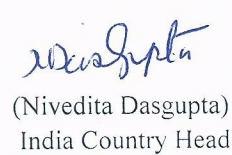 NDasGupta
(Nivedita Dasgupta)
India Country Head